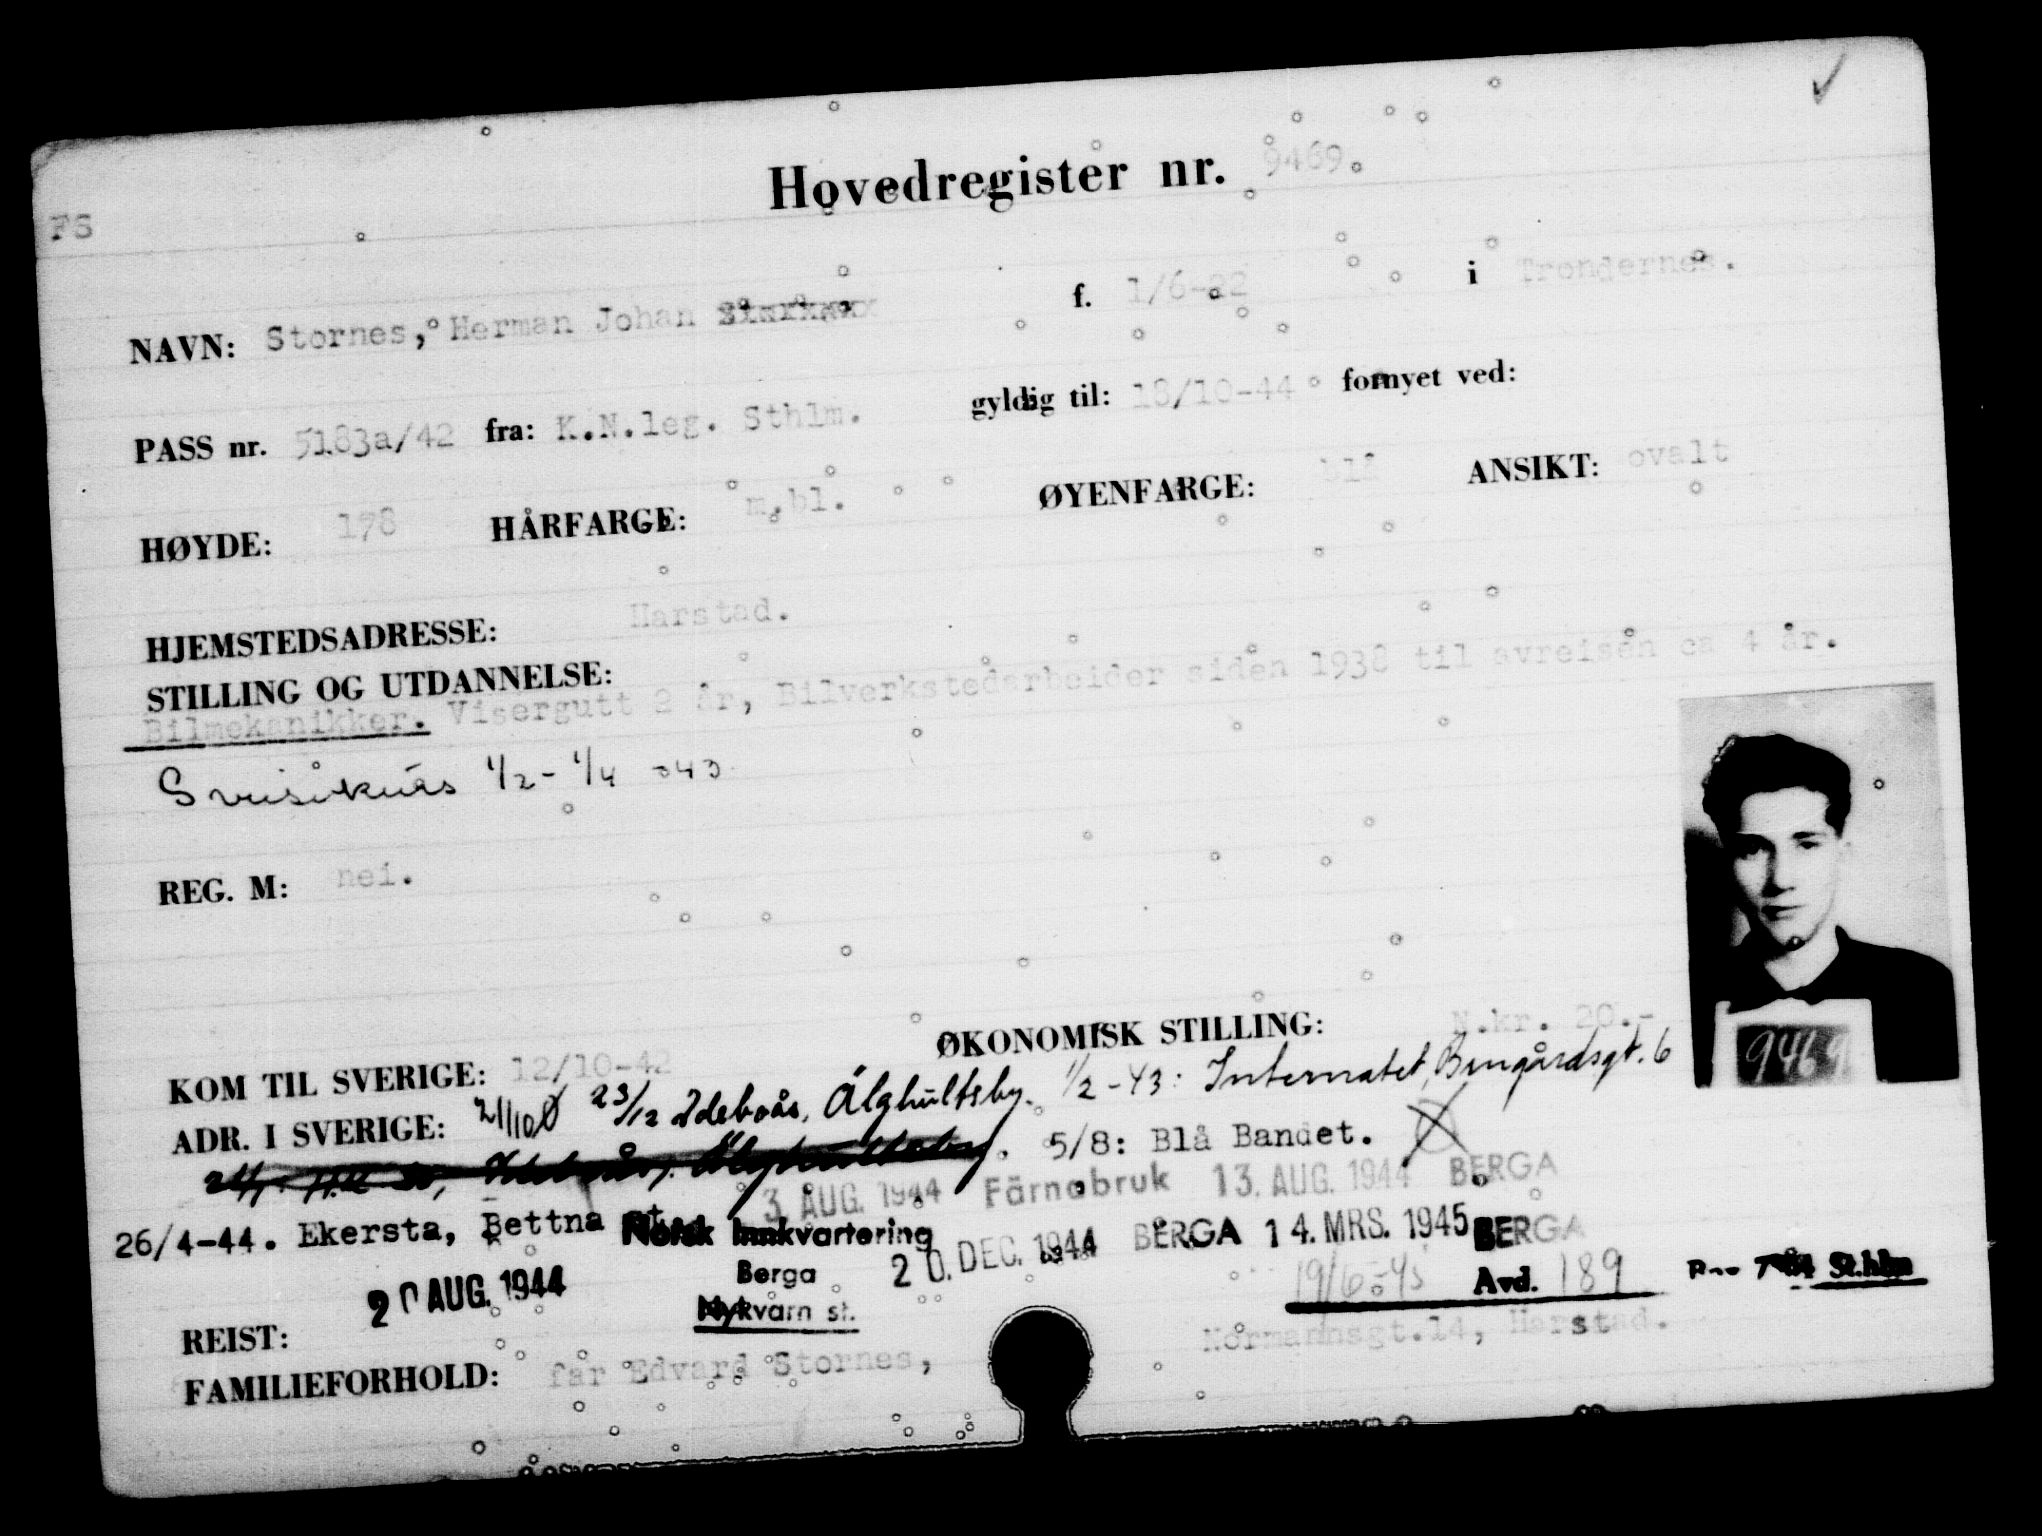 Hovedregister nr. 9469.
FS
NAVN: Stornes, Herman Johan f. 1/6-22 i Trondernes.
PASS nr. 5183a/42 fra: K.N.leg. Sthlm. gyldig til: 18/10-44 fornyet ved:
HØYDE: 178 HÅRFARGE: m.bl. ØYENFARGE: blå ANSIKT: ovalt
HJEMSTEDSADRESSE: Harstad.
STILLING OG UTDANNELSE:
Bilmekanikker. Visergutt 2 år, Bilverkstedarbeider siden 1938 til avreisen ca 4 år.
Sveisekurs 1/2 - 1/4 -43
REG. M: nei.
ØKONOMISK STILLING: N.kr. 20.-
9469
KOM TIL SVERIGE: 12/10-42
ADR. I SVERIGE: 21/10 Ø 23/12 Ideboås, Älghultsby. 1/2-43: Internatet, Bangårdsgt. 6
5/8: Blå Bandet.
3. AUG. 1944 Färnabruk 13. AUG. 1944 BERGA
26/4-44. Ekersta, Bettna st. Norsk Innkvartering
20. DEC. 1944 BERGA 14. MRS. 1945 BERGA
20 AUG. 1944 Berga
Nykvarn st.
19/6-45 Avd. 189 Sthlm
REIST:
FAMILIEFORHOLD: far Edvard Stornes, Normannsgt.14, Harstad.